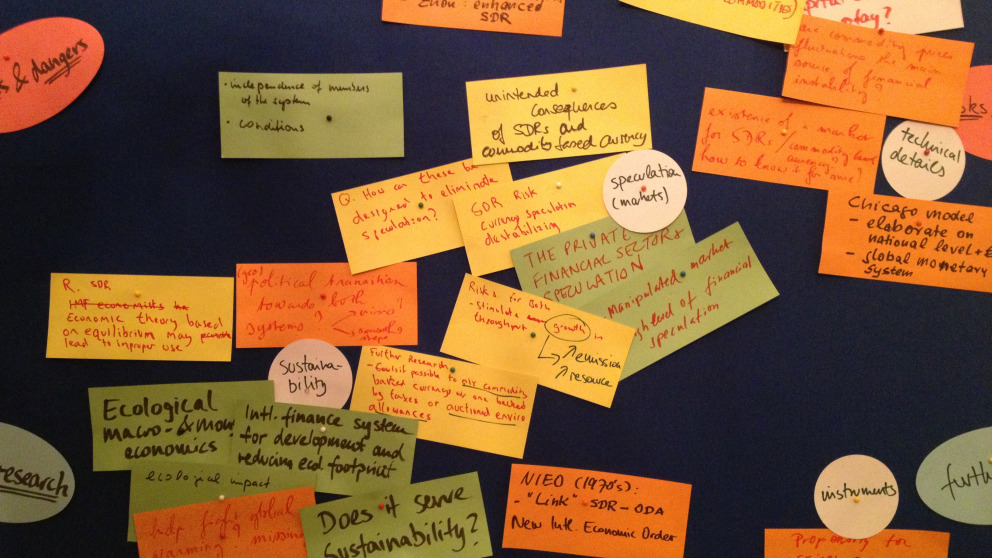 enhanced
SDR
COMMODITIES)
play?
& dangers
are commodity prices
fluctuations the main
source of financial
instability?
• independence of members
of the system
• conditions
unintended
consequences
of SDRs and
commodity based currency
existence of a market
for SDRs / commodity based
currency?
how to know it for sure?
technical
details
Q. How can these be
designed to eliminate
speculation?
SDR Risk
currency speculation
destabilizing
speculation
(markets)
THE PRIVATE
FINANCIAL SECTOR
SPECULATION
Manipulated market
level of financial
speculation
Chicago model
- elaborate on
national level +
- global monetary
system
R. SDR
IMF economists
Economic theory based
on equilibrium may
lead to improper use
(geo)
political transition
towards both
systems
Risks for both
- stimulate growth in
throughput
↗ emission
↗ resource
sustaina-
bility
Further Research
possible to
backed currency w/ one backed
by taxes or auctioned enviro
allowances
Ecological
macro- & mon
economics
Intl. finance system
for development and
reducing ecol footprint
ecological impact
research
global
warming: missing
Does it serve
Sustainability?
NIEO (1970's):
- "Link" SDR - ODA
New Intl. Economic Order
instruments
furth
for